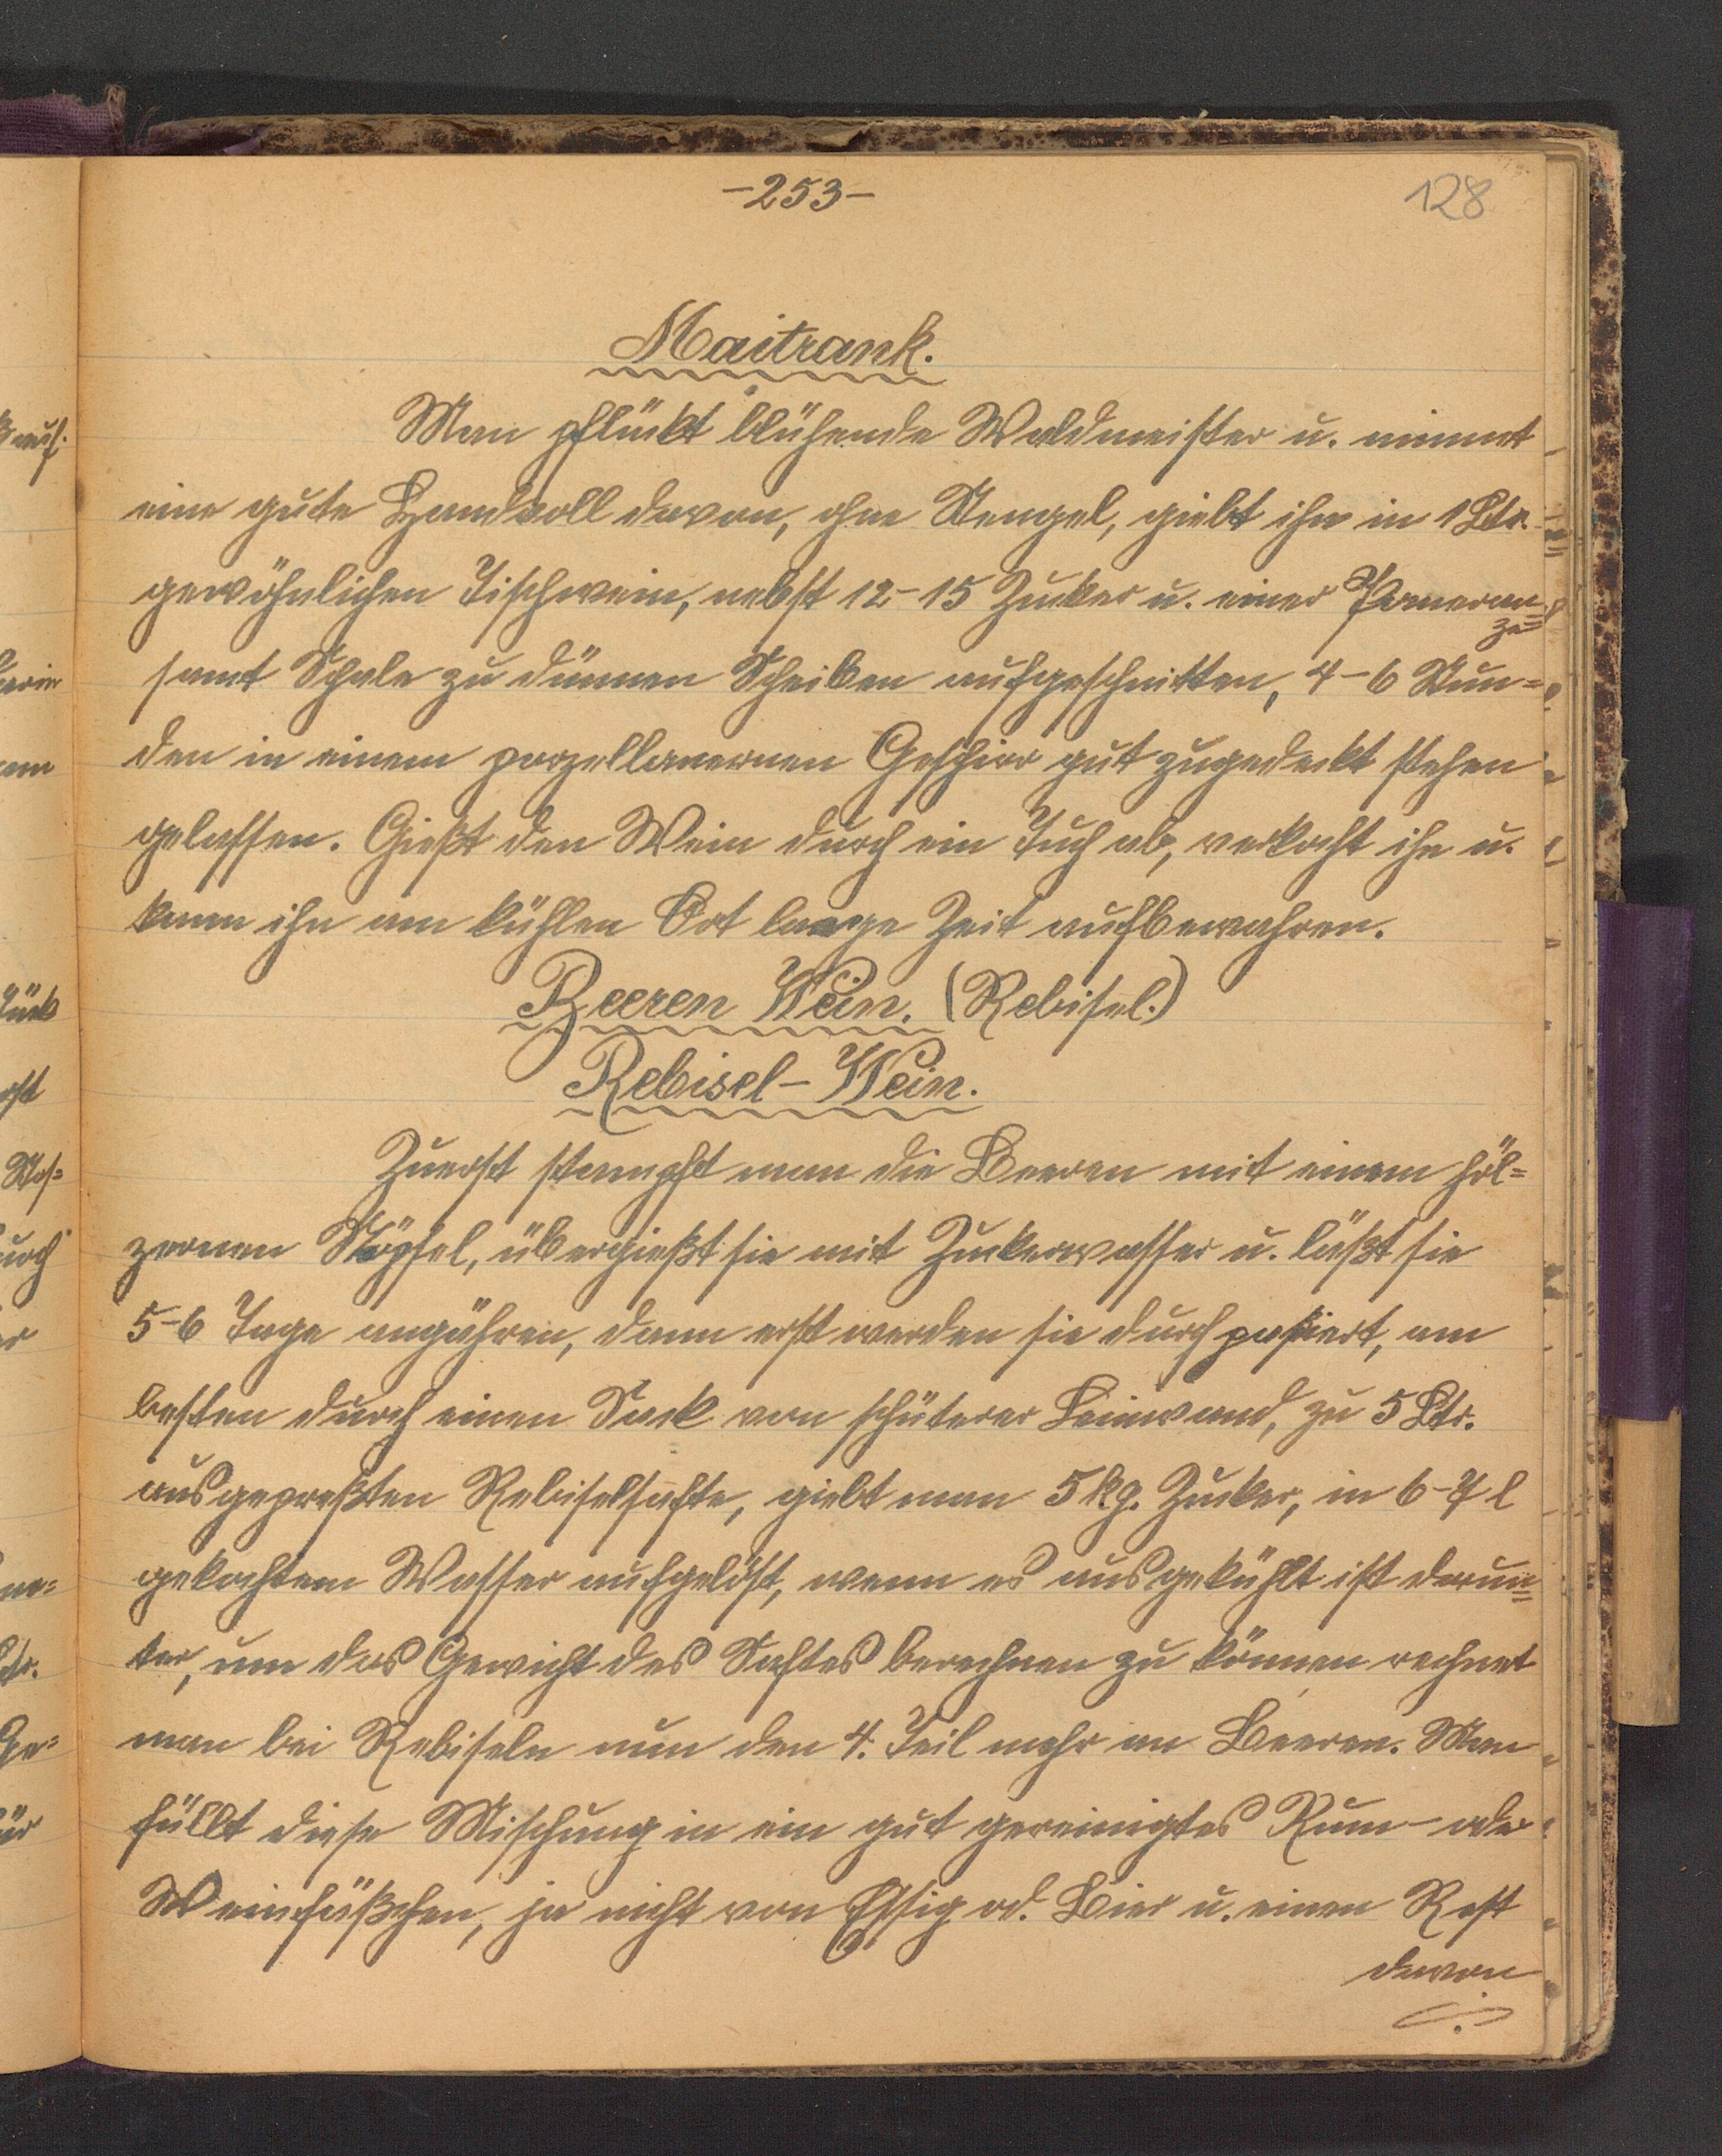 -253-
128
Maitrank.
Man pflückt blühende Waldmeister u. nimmt
eine gute Handvoll davon, ohne Stengel, giebt ihn in 1 Ltr.
gewöhnlichen Tischwein, nebst 12-15 Zucker u. einer Pomeran=
ze
samt Schale zu dünnen Scheiben aufgeschnitten, 4-6 Stun=
den in einem porzellanernen Geschirr gut zugedeckt stehen
gelassen. Gießt den Wein durch ein Tuch ab, verkocht ihn u.
kann ihn am kühlen Ort lange Zeit aufbewahren.
Beeren Wein. (Rebisel.)
Rebisel-Wein.
Zuerst stampft man die Beeren mit einem höl=
zernen Stöpsel, übergießt sie mit Zuckerwasser u. läßt sie
5-6 Tage angähren, dann erst werden sie durch paßiert, am
besten durch einen Sack von schüterer Leinwand, zu 5 Ltr.
ausgepreßten Rebiselsafte, giebt man 5 kg. Zucker, in 6-7 l
gekochtem Wasser aufgelöst, wenn es ausgekühlt ist darun=
ter, um das Gewicht des Saftes berechnen zu können rechnet
man bei Rebiseln nun den 4. Teil mehr an Beeren. Man
füllt diese Mischung in ein gut gereinigtes Rum- oder
Weinfäßchen, ja nicht von Essig od. Bier u. einen Rest
davon